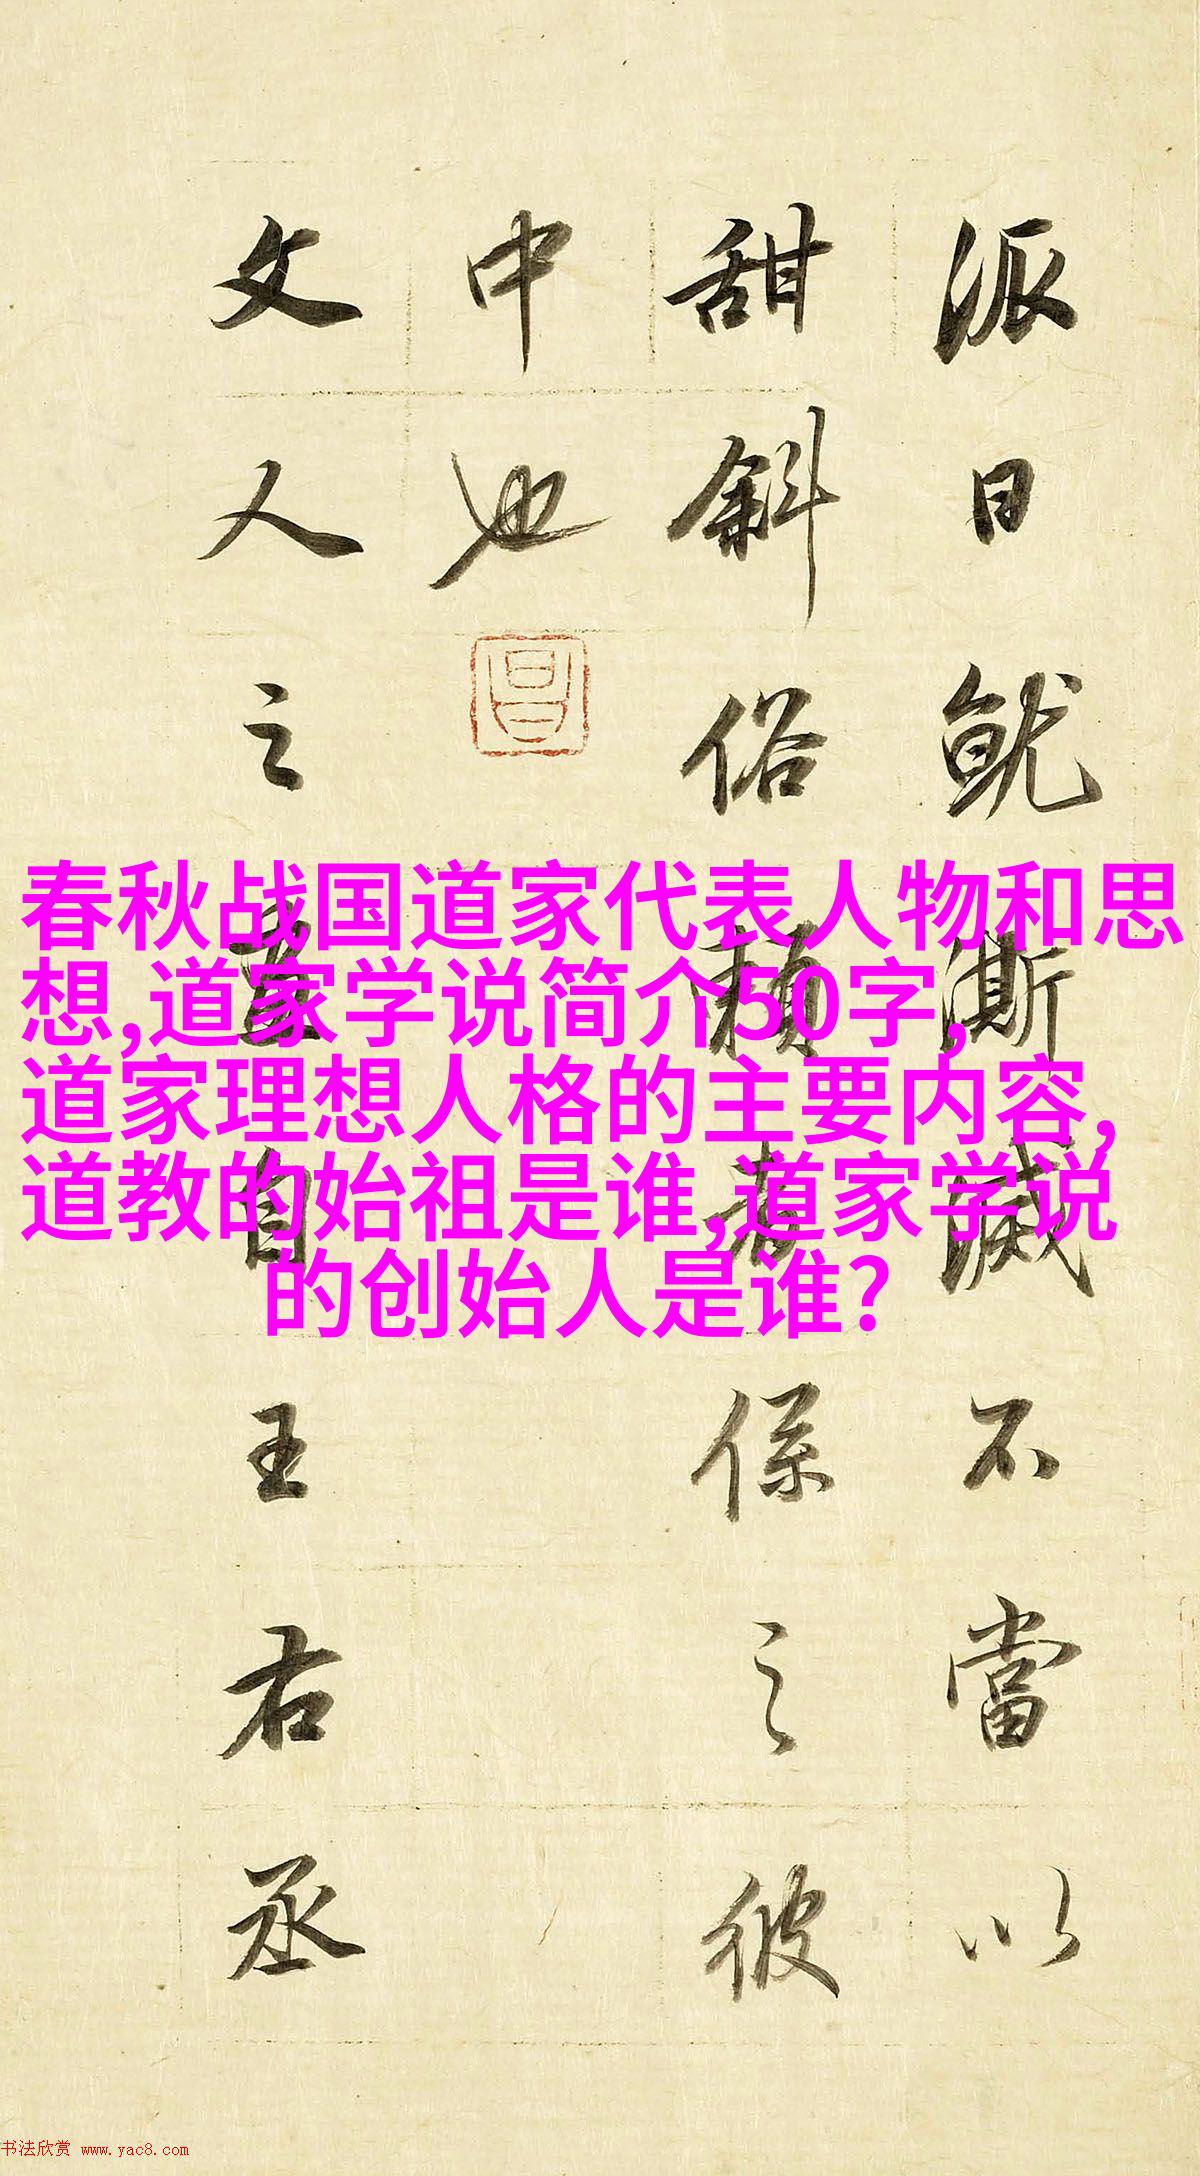 春秋战国道家代表人物和思
想,道家学说简介50字,
道家理想人格的主要内容,
道教的始祖是谁,道家学说
的创始人是谁?
派日就澌滅不當以
甜斜俗賴者係之彼
中也
昌
文人之畫自王右丞
书法欣赏 www.yac8.com